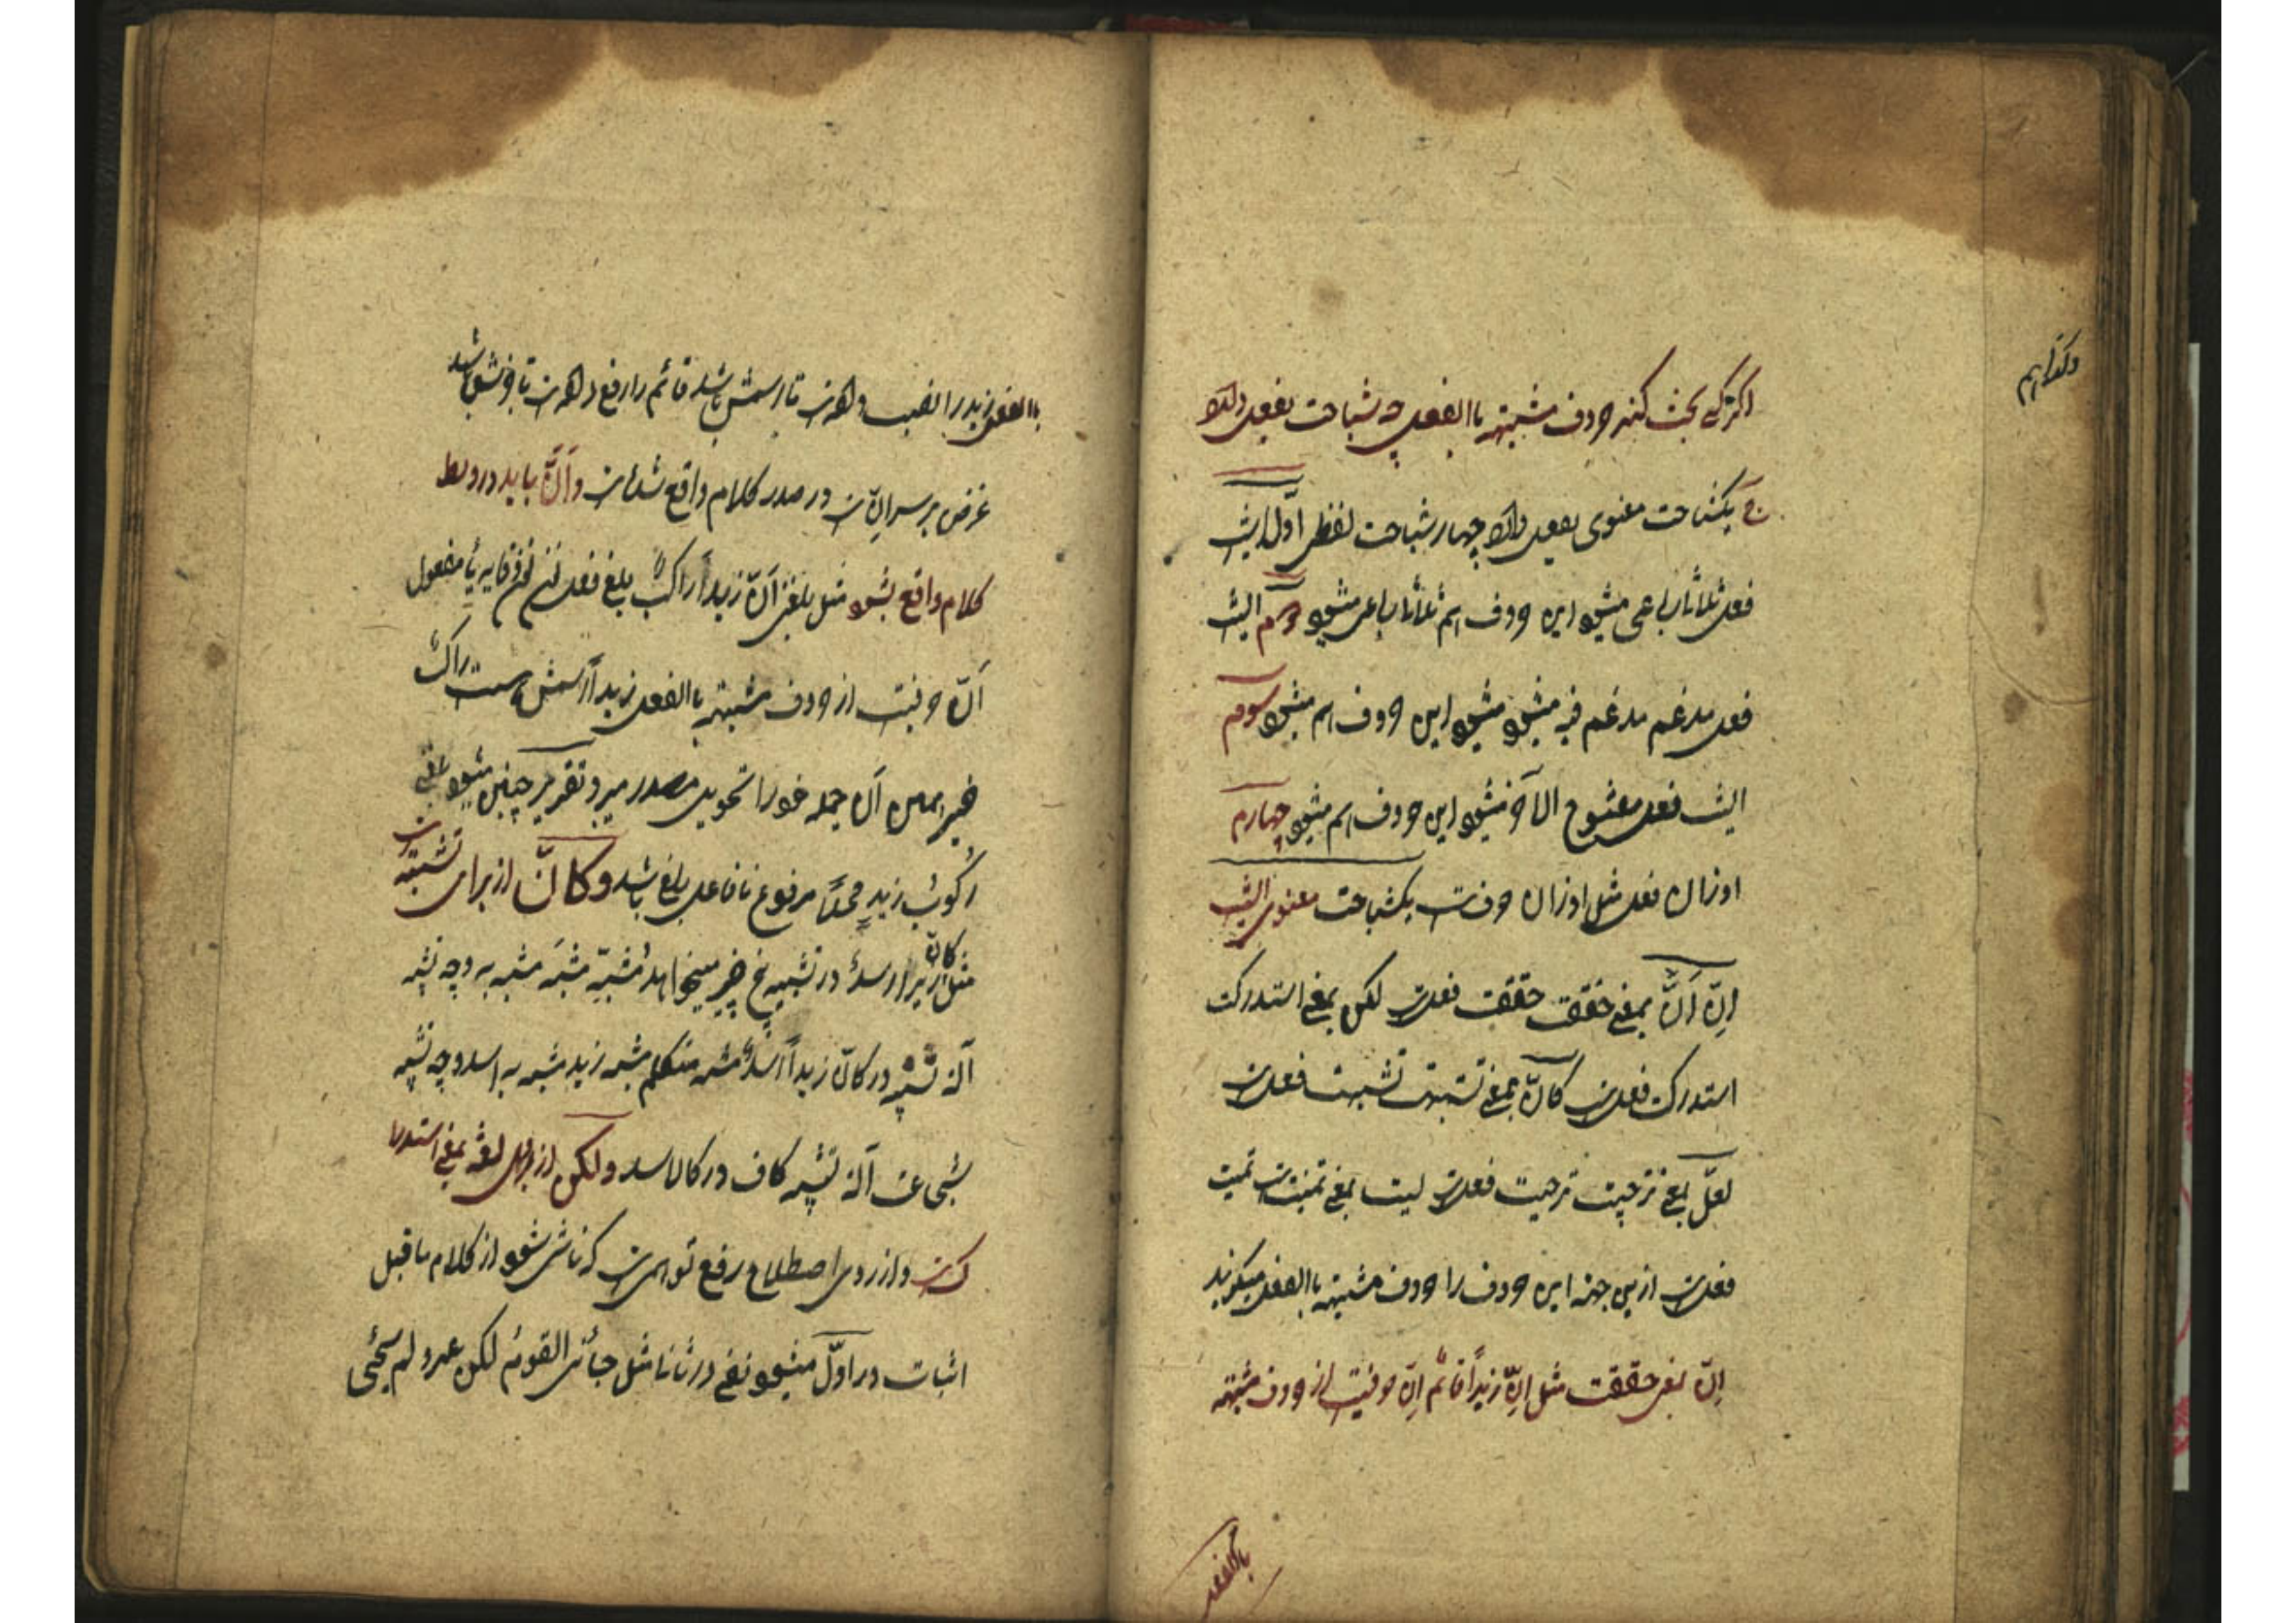 اکر کسی بحث کند حروف مشبهه باالفعل چه شباهت بفعل دارد
ج یکشباهت معنوی بفعل دارد چهار شباهت لفظی اوّل اینست
فعل ثلاثا رباعی میشود این حروف هم ثلاثا رباعی میشود دوم اینست
فعل مدغم مدغم فیه میشود میشود این حروف هم میشود سوم
اینست فعل مفتوح الآخر میشود این حروف هم میشود چهارم
اوزان فعل مثل اوزان حرفست یکشباهت معنوی اینست
اِنّ اَنَّ بمعنی حققت حققت فعلست لکن بمعنی استدرکت
استدرکت فعلست کانّ بمعنی تشبهت تشبهت فعلست
لعلّ بمعنی ترجیت ترجیت فعلست لیت بمعنی تمنیت است تمنیت
فعلست ازین جهته این حروف را حروف مشبهه باالفعل میکویند
اِنّ بمعنی حققت مثل اِنّ زیداً قائم اِنّ حرفیست از حروف مشبهه
باالفعل
باالفعل زید را نصب داده است تا اسمش باشد قائم را رفع داده است تا خبرش باشد
غرض بر سر اِنّ است در صدر کلام واقع شده است و اَنَّ باید در وسط
کلام واقع بشود مثل بلغنی اَنّ زیداً راکبٌ بلغ فعل نون وقایه یا مفعول
اَنّ حرفیست از حروف مشبهه باالفعل زیداً اسمش است راکب
خبر اَن جمله خود را تحویل مصدر میبرد تقدیر چنین میشود بلغنی
رکوبُ زیدٍ محلّاً مرفوع تا فاعل بلغ باشد و کَانَّ از برای تشبیه است
مثل کانّ زیداً اسدٌ در تشبیه پنج چیز میخواهد مُشبِّه مشبَّه مشبه به وجه تشبیه
آلة تشبیه در کانّ زیداً اسدٌ مشبه متکلم مشبه زید مشبه به اسد وجه تشبیه
شجاعت آلة تشبیه کاف در کان اسد و لکن از برای لغة بمعنی استدرا
ک است و از روی اصطلاح رفع توهم است که ناشی شود از کلام ماقبل
اثبات در اوّل میشود نفی در ثانا مثل جائنی القومُ لکن عمرو لم یجئی